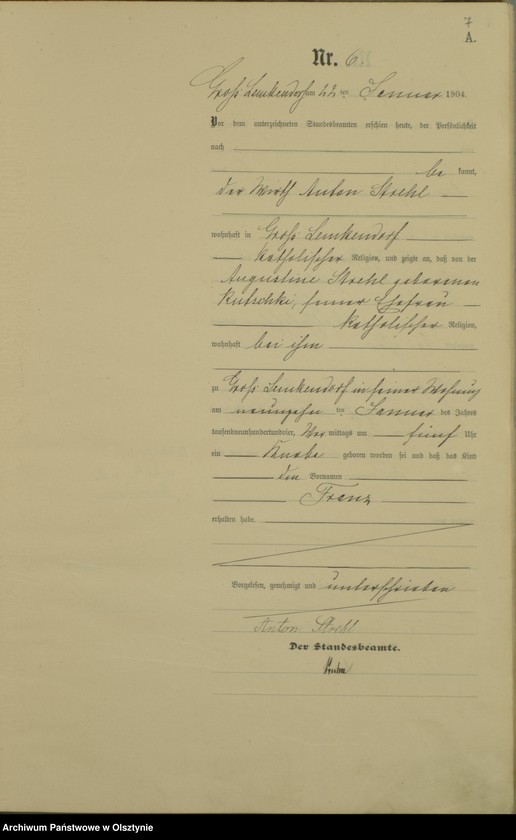 7
A.
Nr. 6
Groß Lemkendorf am 22 ten Januar 1904.
Vor dem unterzeichneten Standesbeamten erschien heute, der Persönlichkeit
nach
be kannt,
der Wirth Anton Strehl
wohnhaft in Groß Lemkendorf
katholischer Religion, und zeigte an, daß von der
Augustine Strehl geborenen
Kutschki, seiner Ehefrau
katholischer Religion,
wohnhaft bei ihm
zu Groß Lemkendorf in seiner Wohnung
am neunzehn ten Januar des Jahres
tausendneunhundertundvier, Vor mittags um fünf Uhr
ein Knabe geboren worden sei und daß das Kind
den Vornamen
Franz
erhalten habe.
Vorgelesen, genehmigt und unterschrieben
Anton Strehl
Der Standesbeamte.
Archiwum Państwowe w Olsztynie